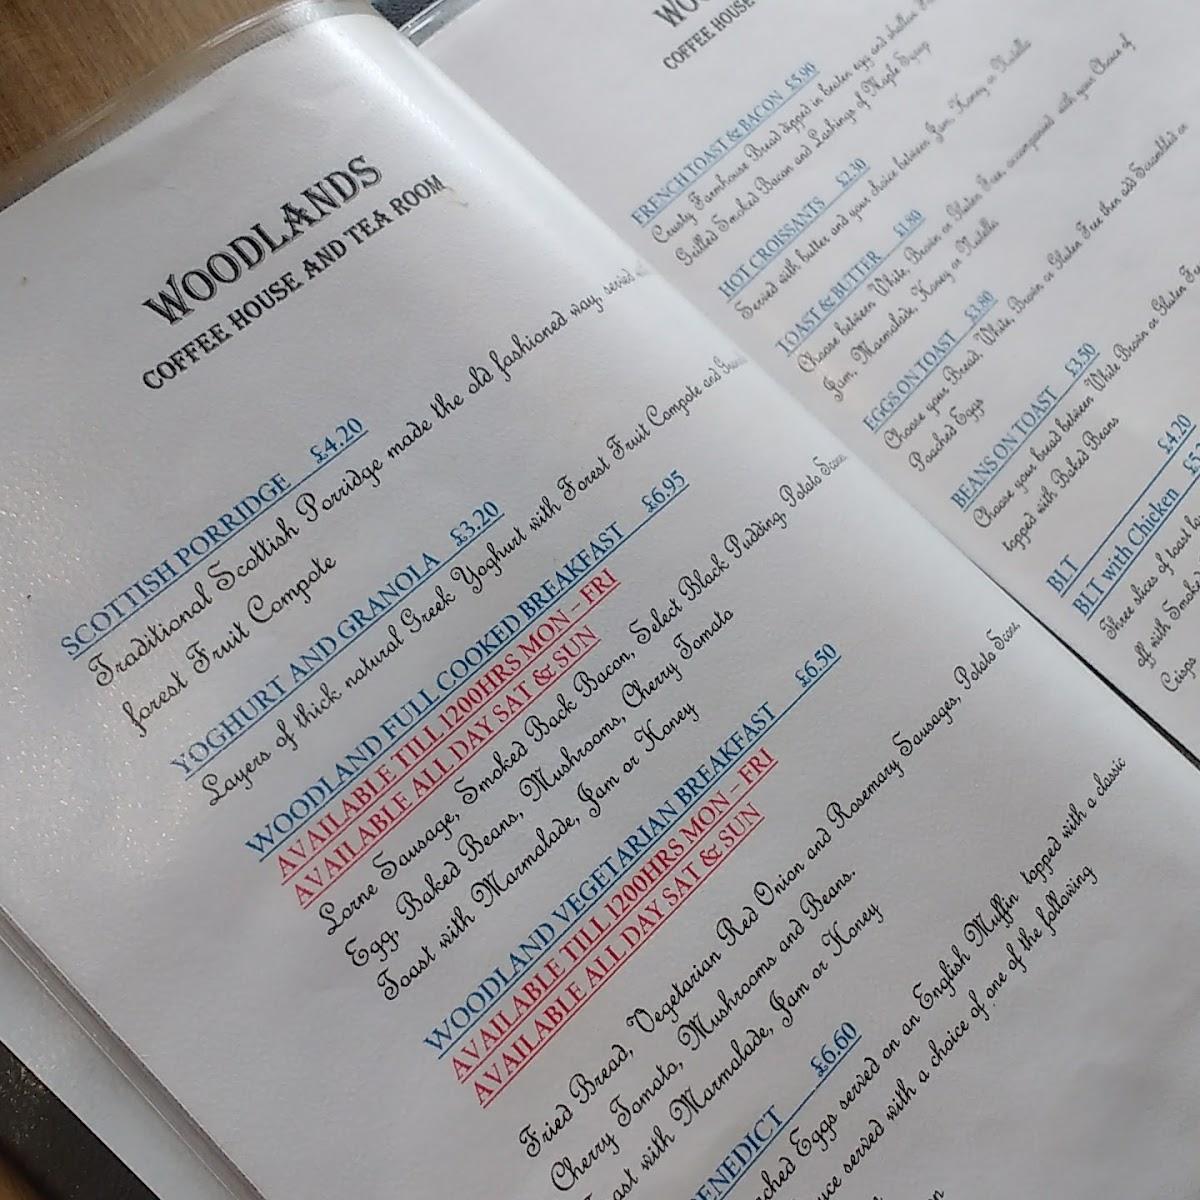 WOODLANDS
COFFEE HOUSE AND TEA ROOM
SCOTTISH PORRIDGE £4.20
Traditional Scottish Porridge made the old fashioned way, served
forest Fruit Compote
YOGHURT AND GRANOLA £3.20
Layers of thick natural Greek Yoghurt with Forest Fruit Compote and
WOODLAND FULL COOKED BREAKFAST £6.95
AVAILABLE TILL 1200HRS MON – FRI
AVAILABLE ALL DAY SAT & SUN
Lorne Sausage, Smoked Back Bacon, Select Black Pudding, Potato Scone,
Egg, Baked Beans, Mushrooms, Cherry Tomato
Toast with Marmalade, Jam or Honey
WOODLAND VEGETARIAN BREAKFAST £6.50
AVAILABLE TILL 1200HRS MON – FRI
AVAILABLE ALL DAY SAT & SUN
Fried Bread, Vegetarian Red Onion and Rosemary Sausages, Potato Scone,
Cherry Tomato, Mushrooms and Beans.
Toast with Marmalade, Jam or Honey
BENEDICT £6.60
Eggs served on an English Muffin topped with a classic
served with a choice of one of the following
COFFEE HOUSE
FRENCH TOAST & BACON £5.90
Crusty Farmhouse Bread dipped in beaten egg and shallow
Grilled Smoked Bacon and Lashings of Maple Syrup
HOT CROISSANTS £2.30
Served with butter and your choice between Jam, Honey or Nutella
TOAST & BUTTER £1.80
Choose between White, Brown or Gluten Free, accompanied with your Choice of
Jam, Marmalade, Honey or Nutella
EGGS ON TOAST £3.80
Choose your Bread, White, Brown or Gluten Free then add Scrambled or
Poached Eggs
BEANS ON TOAST £3.50
Choose your bread between White Brown or Gluten Free
topped with Baked Beans
BLT £4.20
BLT with Chicken
Three slices of toast
off with Smoked
Crisps